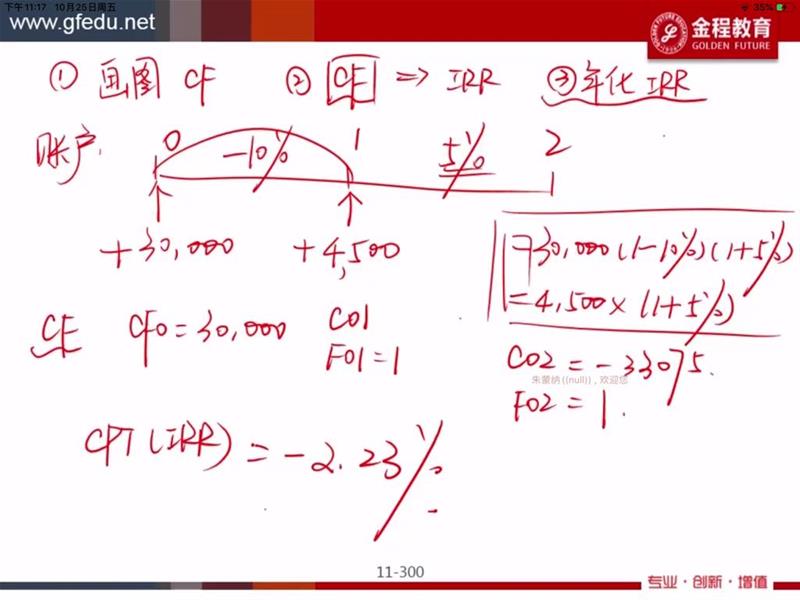 下午11:17 10月25日周五
35%
www.gfedu.net
金程教育
GOLDEN FUTURE
① 画图 CF ② CF ⇒ IRR ③ 年化 IRR
账户 0 -10% 1 5% 2
+30,000 +4,500
-30,000(1-10%)(1+5%)
=4,500×(1+5%)
CF CF0=30,000 C01
F01=1
C02=-33075.
F02=1.
朱蒙纳 ((null))，欢迎您
CPT(IRR)=-2.23%
11-300
专业·创新·增值